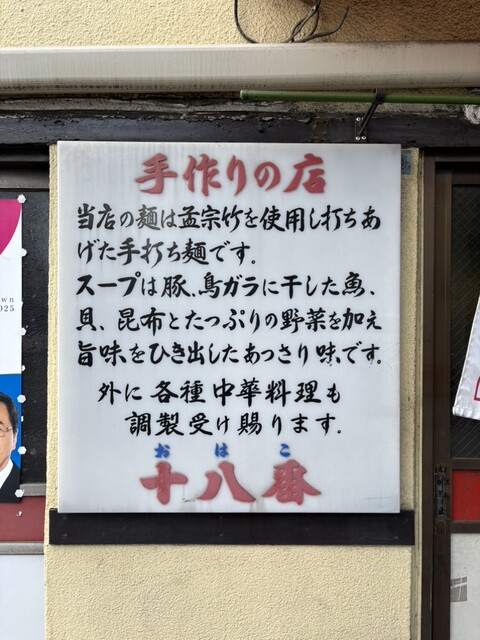 手作りの店
当店の麺は孟宗竹を使用し打ちあ
げた手打ち麺です。
スープは豚、鳥ガラに干した魚、
貝、昆布とたっぷりの野菜を加え
旨味をひき出したあっさり味です。
外に各種中華料理も
調製受け賜ります。
おはこ
十八番
wn
025